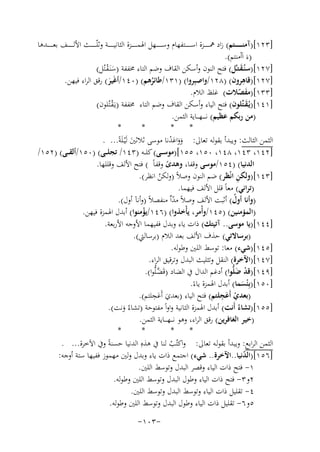 [١٢٣](أءمنــتم) زاد همــزة اســتفهام وســهل الهمــزة الثانيــة وثلــث الألــف بعــدها
(ءَ ا۬امنتم).
[١٢٧](سنُقَتِّل) فتح النون وأسكن القاف وضم التاء مخففة (سَنَقْتُل)
[١٢٧](قاهرون) (١٢٨/واصبروا) (١٣١/طائرهم) (١٤٠/أغيرَ) رقق الراء فيهن.
[١٣٣](مفصَّلات) غلظ اللام.
[١٤١](يُقَتِّلون) فتح الياء وأسكن القاف وضم التاء مخففة (يَقْتُلون)
(من ربكم عظيم) نهاية الثمن.
* * * *
الثمن الثالث: ويبدأ بقوله تعالى: وَوَاعَدْنا موسى ثلاثينَ لَيْلَةً... .
[١٤٢، ١٤٣، ١٤٨، ١٥٠، ١٥٥](موسى) كله (١٤٣/ تجلى) (١٥٠/ألقى) (١٥٢/
الدنيا) (١٥٤/موسى وقفا، وهدىً وقفاً ) فتح الألف وقللها.
[١٤٣](ولكنِ انْظر) ضم النون وصلاً (ولكنُ انظر).
(تراني) معاً قلل الألف فيهما.
(وأنا أول) أثبت الألف وصلاً مدًّا منفصلاً (وأنآ أول).
(المؤمنين) (١٤٥/وأمر، يأخذوا) (١٤٦/يؤمنوا) أبدل الهمزة فيهن.
[١٤٤](يا موسى.. آتيتك) ذات ياء وبدل ففيهما الأوجه الأربعة.
(برسالاتي) حذف الألف بعد اللام (برسالتي).
[١٤٥](شيء) معا: توسط اللين وطوله.
[١٤٧](الآخرة) النقل وتثليث البدل وترقيق الراء.
[١٤٩](قدْ ضلُّوا) أدغم الدال في الضاد (قَضَّلُّوا).
[١٥٠](بئسما) أبدل الهمزة ياءً.
(بعديْ أعَجلتم) فتح الياء (بعديَ أعَجلتم).
[١٥٥](تشاءُ أنت) أبدل الهمزة الثانية واواً مفتوحة (تشاءُ وَنت).
(خير الغافرين) رقق الراء، وهو نهاية الثمن.
* * * *
الثمن الرابع: ويبدأ بقوله تعالى: واكتُبْ لنا في هذهِ الدنيا حسنةً وفي الآخرة... .
[١٥٦](الدُّنيا..الآخرة.. شيء) اجتمع ذات ياء وبدل ولين مهموز ففيها ستة أوجه:
١- فتح ذات الياء وقصر البدل وتوسط اللين.
٢و٣- فتح ذات الياء وطول البدل وتوسط اللين وطوله.
٤- تقليل ذات الياء وتوسط البدل وتوسط اللين.
٥و٦- تقليل ذات الياء وطول البدل وتوسط اللين وطوله.
-١٠٣-